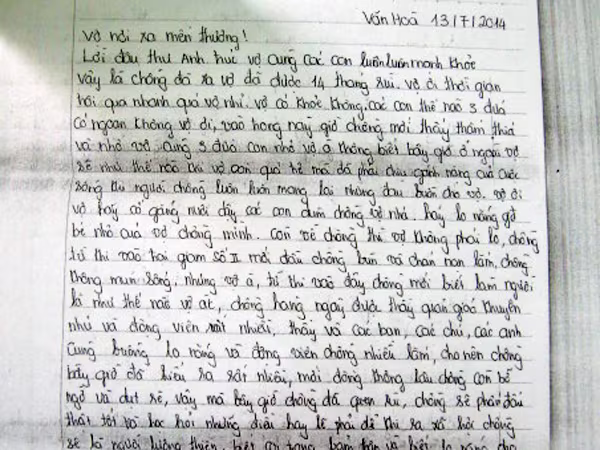 Văn Hoá 13/7/2014
Vợ nơi xa mến thương!
Lời đầu thư Anh chúc vợ cùng các con luôn luôn mạnh khỏe
vậy là chồng đã xa vợ đã được 14 tháng rùi. vợ ơi thời gian
trôi qua nhanh quá vợ nhỉ. vợ có khỏe không, các con thế nào 3 đứa
có ngoan không vợ ơi, vào trong này giờ chồng mới thấy thấm thía
và nhớ vợ cùng 3 đứa con nhỏ vợ ạ không biết bây giờ ở ngoài vợ
sẽ như thế nào khi vợ còn quá trẻ mà đã phải chịu gánh nặng của cuộc
sống thì người chồng luôn luôn mang lại những đau buồn cho vợ. vợ ơi
vợ hãy cố gắng nuôi dậy các con dùm chồng vợ nhá. hãy lo nắng gở
bé nhỏ của vợ chồng mình. Còn về chồng thì vợ không phải lo, chồng
từ khi vào trại giam số II mới đầu chồng buồn và chán nản lắm, chồng
không muốn sống, nhưng vợ ạ, từ khi vào đây chồng mới biết làm người
là như thế nào vợ ạ, chồng hàng ngày được thầy quản giáo khuyên
nhủ và động viên rất nhiều, thầy và các bạn, các chú, các anh
cũng buồng lo nóng và động viên chồng nhiều lắm, cho nên chồng
bây giờ đã hiểu ra rất nhiều, mới đông không lâu chồng còn bỡ
ngỡ và dụt dè, vậy mà bây giờ chồng đã quen rùi, chồng sẽ phấn đấu
thật tốt và học hỏi những điều hay lẽ phải để khi ra xã hội chồng
sẽ là người lương thiện, biết